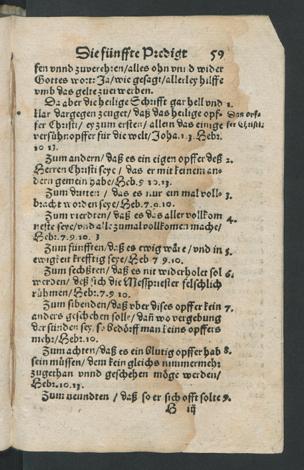 Die fünffte Predigt 59
ken vnnd zuverehren/alles ohn vnd wider
Gottes wort: Ja/wie gesagt/allerley hilffe
vmb das gelt zuerwerben.
Da aber die heilige Schrifft gar hell vnd 1.
klar dargegen zeuget/daß das heilige opf- Das opf-
fer Christi/ey zum ersten/allein das einige fer Christi.
versühnopffer für die welt/Joha.1.3. Hebr.
10 13.
Zum andern/daß es ein eigen opffer deß 2.
Herren Christi seye/das er mit keinem an-
dern gemein habe/Heb.9 10.13.
Zum dritten/das es nur ein mal voll- 3.
bracht worden seye/Heb.7.9.10.
Zum vierdten/daß es das aller vollkom 4.
neste seye/vnd alle zumal vollkomen mache/
Hebr.7.9.10.
Zum fünfften/daß es ewig wäre/vnd in 5.
ewigkeit krefftig seye/Heb 7 9.10.
Zum sechßten/daß es nit widerholet sol 6.
werden/deß sich die Messpriester felschlich
rühmen/Hebr.7.9 10.
Zum sibenden/daß vber dises opffer kein 7.
anders geschehen solle/dañ wo vergebung
der sünden sey/so bedörff man keins opffers
mehr/Hebr.10.
Zum achten/daß es ein blutig opffer hab 8.
sein müssen/dem kein gleichs nimmermehr
zugethan vnnd geschehen möge werden/
Hebr.10.13.
Zum neundten/daß so er sich offt solte 9.
H iij